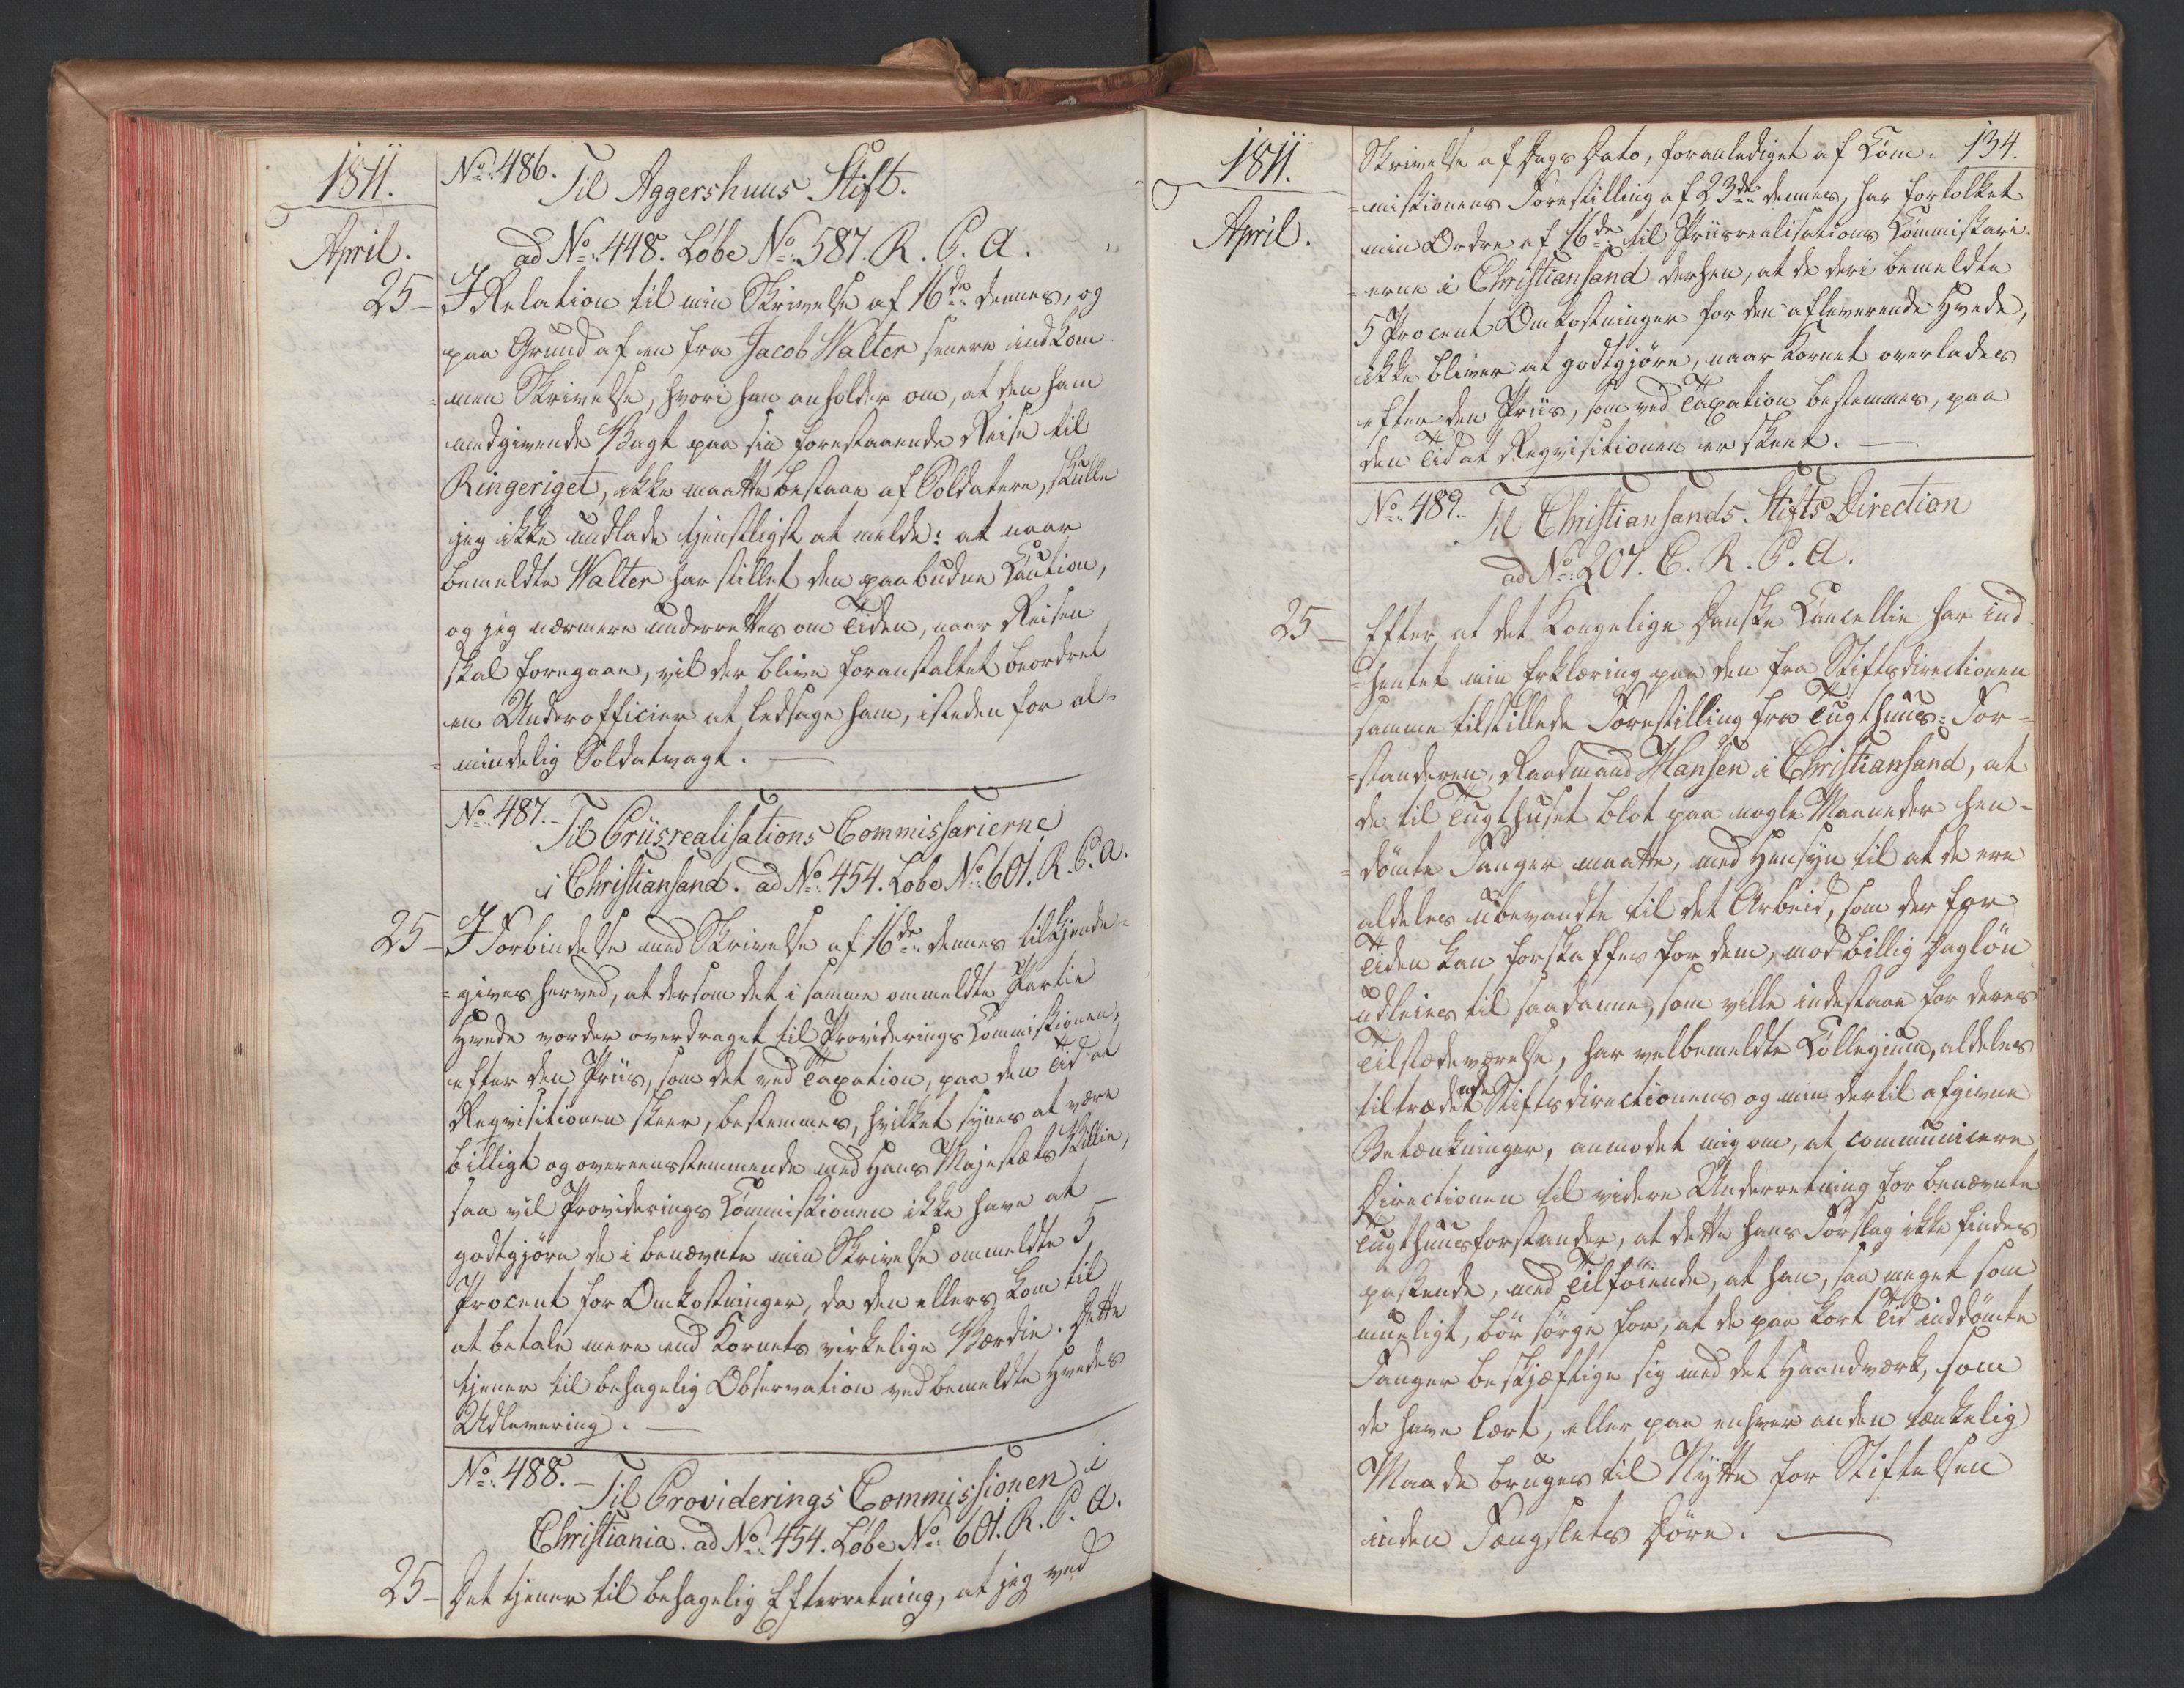 1811.
April.
No: 486.
Til Aggershuus Stift.
ad No: 448. Løbe No: 587. R. P. A.
25 – I Relation til min Skrivelse af 16de dennes, og
paa Grund af en fra Jacob Walter senere indkom-
=men Skrivelse, hvori han anholder om, at den ham
medgivende Vagt paa sin forestaaende Reise til
Ringeriget, ikke maatte bestaae af Soldatere, skulle
jeg ikke undlade tjenstligst at melde: at naar
bemeldte Walter har stillet den paabudne Caution,
og jeg nærmere underrettes om Tiden, naar Reisen
skal foregaae, vil der blive foranstaltet beordret
en Underofficier at ledsage ham, isteden for al-
=mindelig Soldatvagt. —
No: 487. –
Til Priisrealisations Commissarierne
i Christiansand. ad No: 454. Løbe No: 601. R. P. A.
25 – I Forbindelse med Skrivelse af 16de dennes tilkjende-
=gives herved, at dersom det i samme ommeldte Partie
Hvede vorder overdraget til Providerings Commissionen,
efter den Priis, som det ved Taxation, paa den Tid at
Reqvisitionen skeer, bestemmes, hvilket synes at være
billigt og overeensstemmende med Hans Majestæts Villie,
saa vil Providerings Commissionen ikke have at
godtgjøre de i benævnte min Skrivelse ommeldte 5
Procent for Omkostninger, da den ellers kom til
at betale mere end Kornets virkelige Værdie. Dette
tjener til behagelig Observation ved bemeldte Hvedes
Udlevering. —
No: 488. –
Til Providerings Commissionen i
Christiania. ad No: 454. Løbe No: 601. R. P. A.
25 – Det tjener til behagelig Efterretning, at jeg ved
1811.
April.
134.
Skrivelse af Dags Dato, foranlediget af Com-
=missionens Forestilling af 23de dennes, har fortolket
min Ordre af 16de til Priisrealisations Commissari-
=erne i Christiansand derhen, at de deri bemeldte
5 Procent Omkostninger for den afleverende Hvede,
ikke bliver at godtgjøre, naar Kornet overlades
efter den Priis, som ved Taxation bestemmes, paa
den Tid at Reqvisitionen er skeet. —
No: 489. –
Til Christiansands Stifts Direction
ad No: 207. C. R. P. A.
25 – Efter at det Kongelige Danske Cancellie har ind-
=hentet min Erklæring paa den fra Stiftsdirectionen
samme tilstillede Forestilling fra Tugthuus-For-
=standeren, Raadmand Hansen i Christiansand, at
de til Tugthuset blot paa nogle Maaneder hen-
=dømte Fanger maatte, med Hensyn til at de ere
aldeles ubevandte til det Arbeid, som der for
Tiden kan forskaffes for dem, mod billig Dagløn
udleies til saadanne, som ville indestaae for deres
Tilstædeværelse, har velbemeldte Collegium, aldeles
tiltrædende Stiftsdirectionens og min dertil afgivne
Betænkninger, anmodet mig om, at communicere
Directionen til videre Underretning for benævnte
Tugthuusforstander, at dette hans Forslag ikke findes
passende, med Tilføiende, at han, saa meget som
mueligt, bør sørge for, at de paa kort Tid inddømte
Fanger beskjæftige sig med det Haandværk, som
de have lært, eller paa enhver anden tænkelig
Maade bruges til Nytte for Stiftelsen
inden Fængslets Døre. —